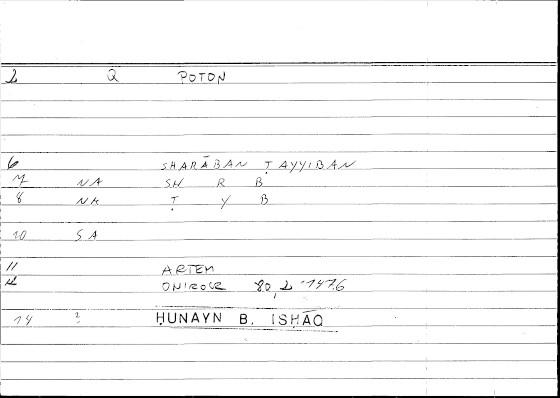 2 Q POTON
6 SHARĀBAN ṬAYYIBAN
7 NA SH R B
8 NA Ṭ Y B
10 SA
11 ARTEM
ONIROCR 80, 2 147.6
14 ? ḤUNAYN B. ISḤĀQ